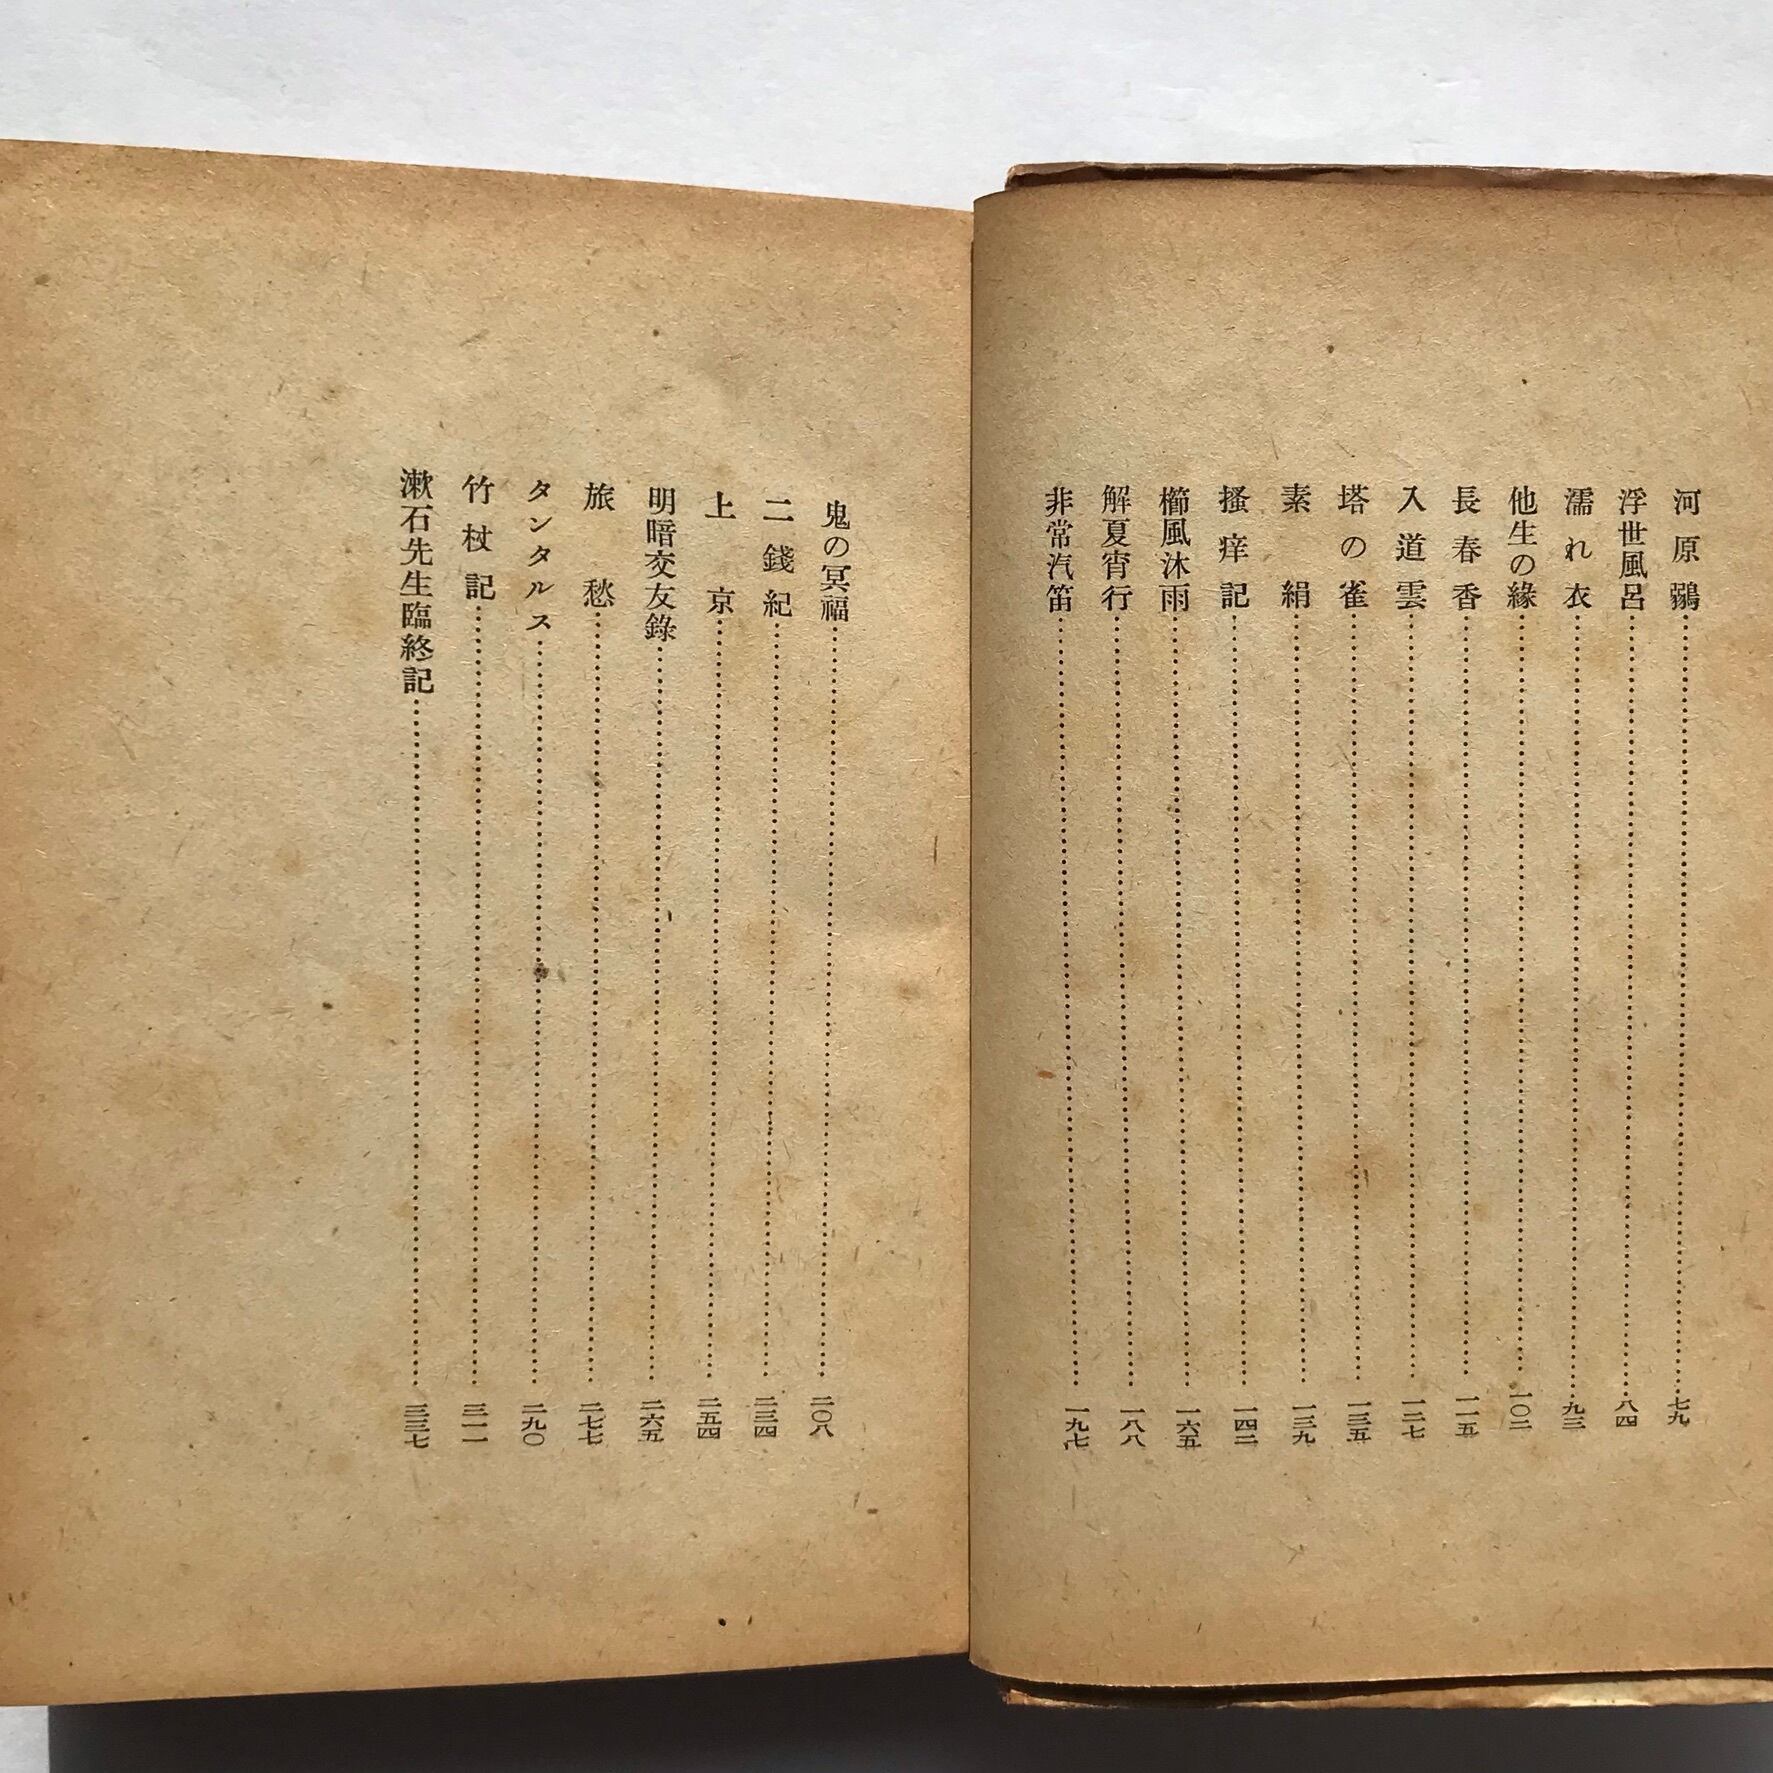 河原鶸……七九
浮世風呂……八四
濡れ衣……九三
他生の緣……一〇二
長春香……一一五
入道雲……一二七
塔の雀……一三五
素絹……一三九
搔痒記……一四二
櫛風沐雨……一六五
解夏宵行……一八八
非常汽笛……一九七
鬼の冥福……二〇八
二錢紀……二三四
上京……二五四
明暗交友錄……二六五
旅愁……二七七
タンタルス……二九〇
竹杖記……三一一
漱石先生臨終記……三三七